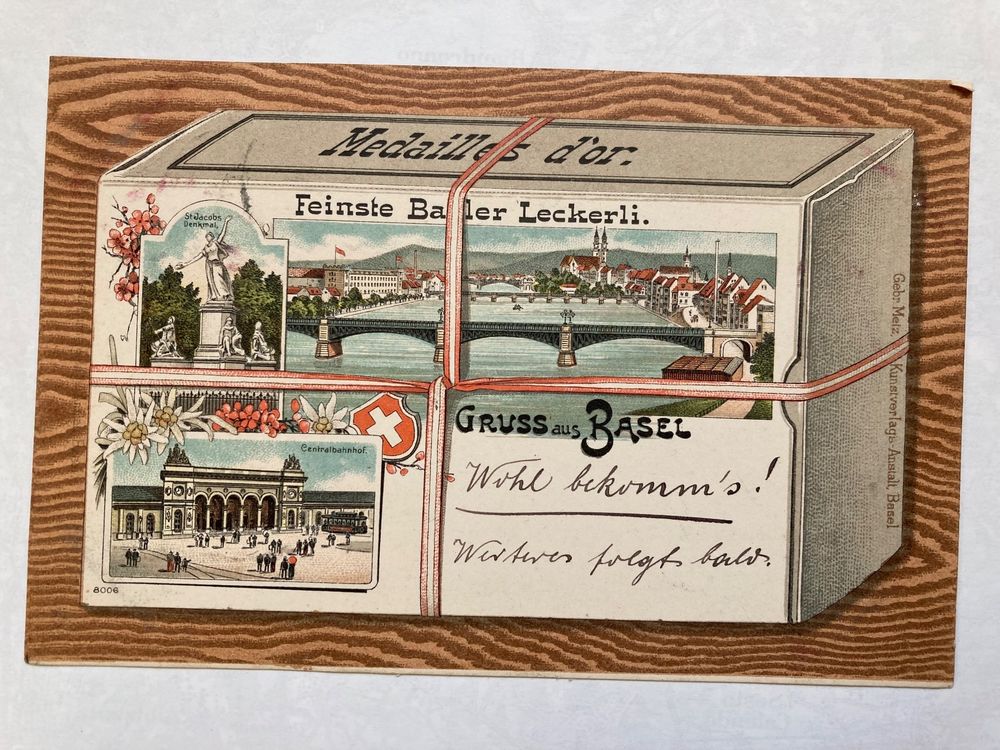 Medailles d'or.
Feinste Basler Leckerli.
St Jacobs
Denkmal.
GRUSS aus BASEL
Wohl bekomm's!
Weiteres folgt bald.
Centralbahnhof.
8006
Gebr. Metz, Kunstverlags-Anstalt, Basel